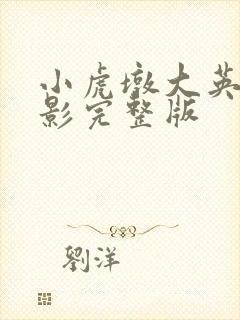 小虎墩大英
影完整版
劉洋